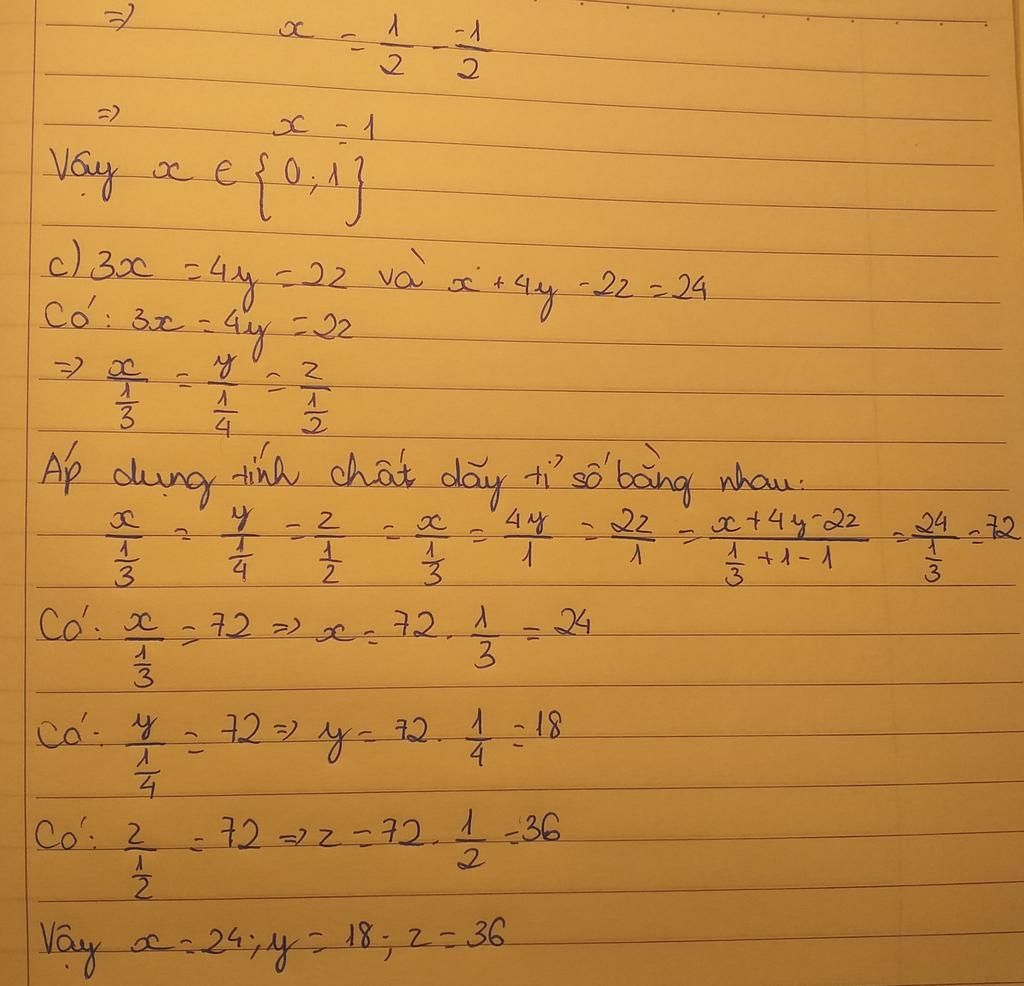 => x = 1/2 - -1/2
=> x = 1
Vậy x ∈ {0; 1}
c) 3x = 4y = 2z và x + 4y - 2z = 24
Có: 3x = 4y = 2z
=> x/(1/3) = y/(1/4) = z/(1/2)
Áp dụng tính chất dãy tỉ số bằng nhau:
x/(1/3) = y/(1/4) = z/(1/2) = x/(1/3) = 4y/1 = 2z/1 = (x + 4y - 2z)/(1/3 + 1 - 1) = 24/(1/3) = 72
Có: x/(1/3) = 72 => x = 72 . 1/3 = 24
Có: y/(1/4) = 72 => y = 72 . 1/4 = 18
Có: z/(1/2) = 72 => z = 72 . 1/2 = 36
Vậy x = 24; y = 18; z = 36